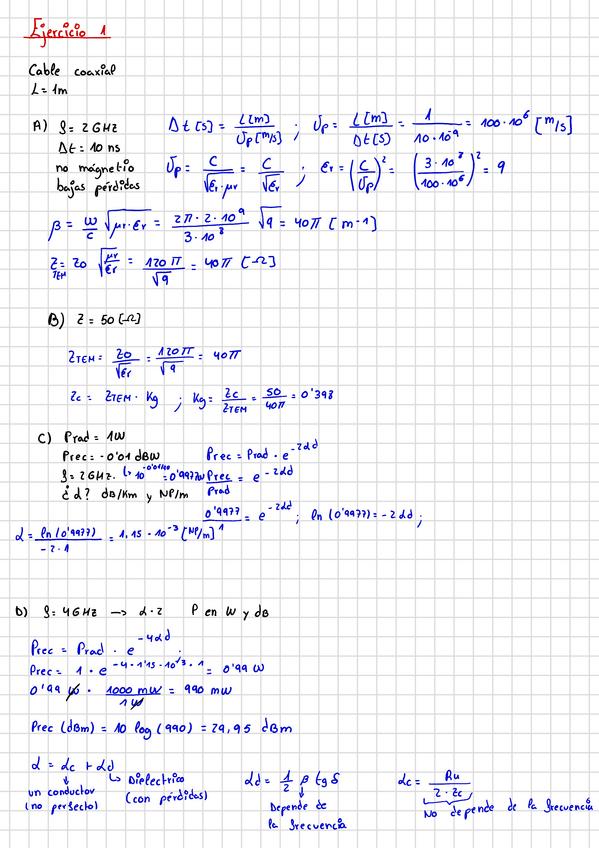 Ejercicio 1
Cable coaxial
L = 1m
A) f = 2 GHz
Δt = 10 ns
no magnetio
bajas pérdidas
Δt [s] = L[m] / Up [m/s] ; Up = L[m] / Δt[s] = 1 / 10·10^-9 = 100·10^6 [m/s]
Up = C / √(εr·μr) = C / √εr ; εr = (C / Up)^2 = (3·10^8 / 100·10^6)^2 = 9
β = ω/c √(μr·εr) = 2π·2·10^9 / 3·10^8 √9 = 40π [m-1]
Z_TEM = Z0 √(μr/εr) = 120π / √9 = 40π [Ω]
B) Z = 50 [Ω]
Z_TEM = Z0 / √εr = 120π / √9 = 40π
Zc = Z_TEM · Kg ; Kg = Zc / Z_TEM = 50 / 40π = 0'398
C) Prad = 1W
Prec = -0'01 dBW
f = 2 GHz. ↳ 10^(-0'01/10) = 0'9977W
¿α? dB/Km y NP/m
Prec = Prad · e^-2αd
Prec / Prad = e^-2αd
0'9977 / 1 = e^-2αd ; ln(0'9977) = -2αd ;
α = ln(0'9977) / -2·1 = 1,15·10^-3 [NP/m]
D) f = 4GHz → α·2 P en W y dB
Prec = Prad · e^-4αd
Prec = 1 · e^(-4·1'15·10^-3·1) = 0'99 W
0'99 W · 1000 mW / 1 W = 990 mW
Prec (dBm) = 10 log (990) = 29,95 dBm
α = αc + αd
un conductor
(no perfecto)
↳ Dielectrico
(con pérdidas)
αd = 1/2 β tg δ
Depende de
la frecuencia
αc = Ru / 2·Zc
No depende de la frecuencia